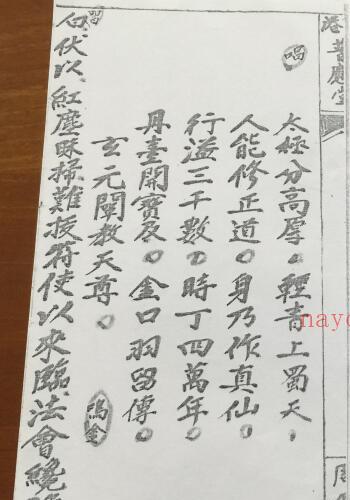 港普慶堂
唱
太極分高厚。輕青上蜀天。
人能修正道。身乃作真仙。
行溢三千數。時丁四萬年。
丹臺開寶及。金口羽留傳。
玄元闡教天尊。
白伏以紅塵昧掃難援符使以來臨法會纔
nayc